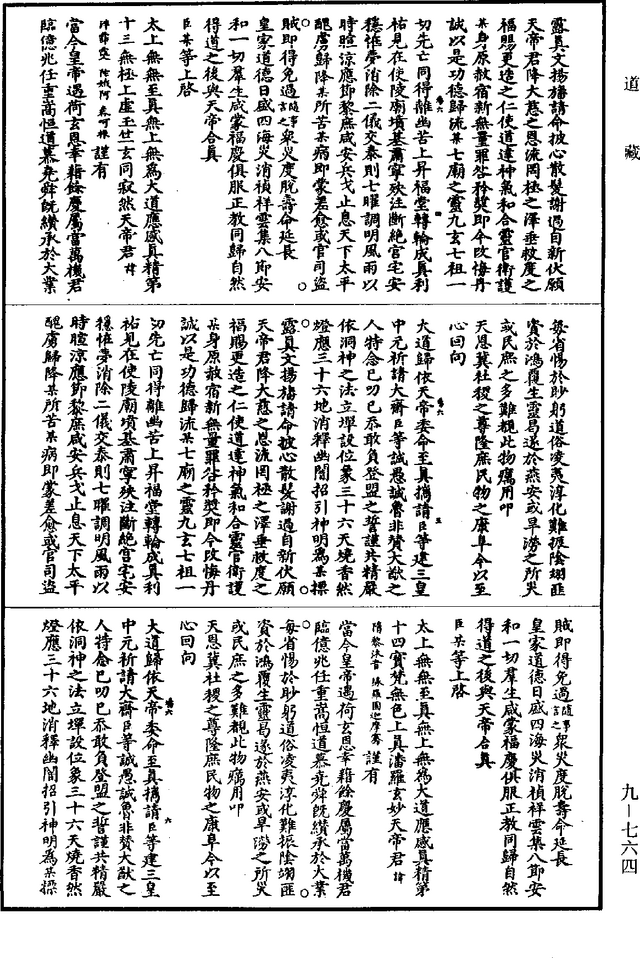 道藏
靈真文揚擲請命披心散髮謝過自新伏願
天帝君降大慈之恩流罔極之澤垂赦度之
福賜更造之仁使道達神氣和合靈官衛護
某身原赦宿新無量罪咎矜獎即今改悔丹
誠以是功德歸流某七廟之靈九玄七祖一
切先亡同得離幽苦上昇福堂轉輪成真利
祐見在使陵廟墳墓肅寧殃注斷絕宮宅安
穩惟夢消除二儀交泰則七曜調明風雨以
時暄涼應節黎庶咸安兵戈止息天下太平
醜虜歸降某所苦某病即蒙差愈或官司盜
賊即得免過隨事言之眾災度脫壽命延長
皇家道德日盛四海災消禎祥雲集八節安
和一切羣生咸蒙福慶俱服正教同歸自然
得道之後與天帝合真
臣某等上啓
太上無無至真無上無為大道應感真精第
十三無極上虛玉世玄同寂然天帝君諱
謹有
當今皇帝遇荷玄恩幸藉餘慶屬當萬機君
臨億兆任重嵩恒道慕堯舜既纘承於大業
每省惕於眇躬道俗凌夷淳化難振陰翊匪
資於鴻覆生靈曷遂於燕安或旱澇之所災
或民庶之多難覩此物癘用叩
天恩冀社稷之尊隆庶民物之康阜今以至
心回向
大道歸依天帝委命至真擕請臣等建三皇
中元祈請大齋臣等誠愚誠魯非贊大猷之
人特念已叨已忝敢負登盟之誓謹共精嚴
依洞神之法立墠設位象三十六天燒香然
燈應三十六地消釋幽闇招引神明為某摽
靈真文揚擲請命披心散髮謝過自新伏願
天帝君降大慈之恩流罔極之澤垂赦度之
福賜更造之仁使道達神氣和合靈官衛護
某身原赦宿新無量罪咎矜獎即今改悔丹
誠以是功德歸流某七廟之靈九玄七祖一
切先亡同得離幽苦上昇福堂轉輪成真利
祐見在使陵廟墳墓肅寧殃注斷絕宮宅安
穩惟夢消除二儀交泰則七曜調明風雨以
時暄涼應節黎庶咸安兵戈止息天下太平
醜虜歸降某所苦某病即蒙差愈或官司盜
賊即得免過隨事言之眾災度脫壽命延長
皇家道德日盛四海災消禎祥雲集八節安
和一切羣生咸蒙福慶俱服正教同歸自然
得道之後與天帝合真
臣某等上啓
太上無無至真無上無為大道應感真精第
十四寶梵無色上真潘羅玄妙天帝君諱
謹有
當今皇帝遇荷玄恩幸藉餘慶屬當萬機君
臨億兆任重嵩恒道慕堯舜既纘承於大業
每省惕於眇躬道俗凌夷淳化難振陰翊匪
資於鴻覆生靈曷遂於燕安或旱澇之所災
或民庶之多難覩此物癘用叩
天恩冀社稷之尊隆庶民物之康阜今以至
心回向
大道歸依天帝委命至真擕請臣等建三皇
中元祈請大齋臣等誠愚誠魯非贊大猷之
人特念已叨已忝敢負登盟之誓謹共精嚴
依洞神之法立墠設位象三十六天燒香然
燈應三十六地消釋幽闇招引神明為某摽
九—七六四